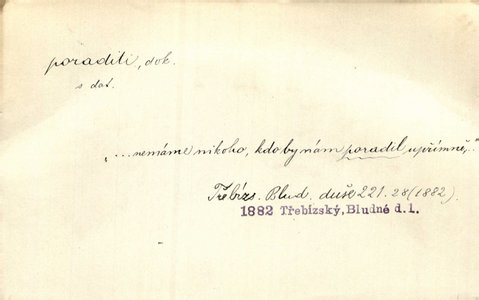 poraditi, dok.
s dat.
„...nemáme nikoho, kdo by nám poradil upřímně,..."
Třebízs. Blud. duše 221.28 (1882).
1882 Třebízský, Bludné d.1.